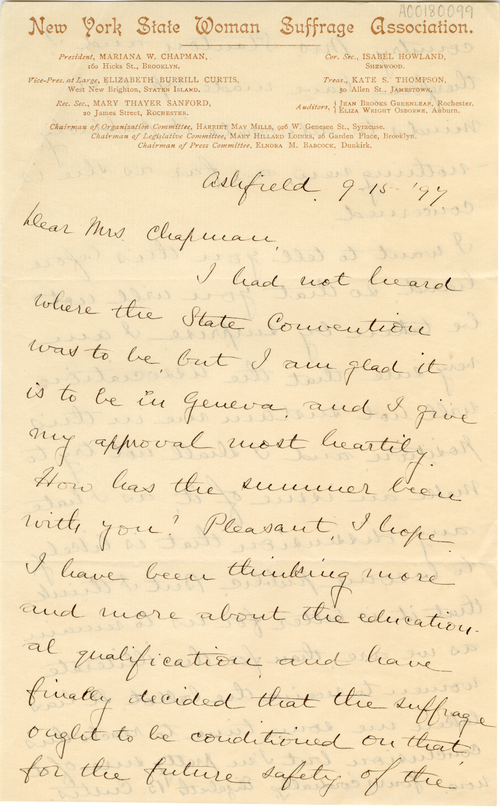 AC0180099
New York State Woman Suffrage Association.
President, MARIANA W. CHAPMAN,
160 Hicks St., BROOKLYN.
Vice-Pres. at Large, ELIZABETH BURRILL CURTIS,
West New Brighton, STATEN ISLAND.
Rec. Sec., MARY THAYER SANFORD,
20 James Street, ROCHESTER.
Cor. Sec., ISABEL HOWLAND,
SHERWOOD.
Treas., KATE S. THOMPSON,
50 Allen St., JAMESTOWN.
Auditors, { JEAN BROOKS GREENLEAF, Rochester.
ELIZA WRIGHT OSBORNE, Auburn.
Chairman of Organization Committee, HARRIET MAY MILLS, 926 W. Genesee St., Syracuse.
Chairman of Legislative Committee, MARY HILLARD LOINES, 26 Garden Place, Brooklyn.
Chairman of Press Committee, ELNORA M. BABCOCK, Dunkirk.
Ashfield 9-15-'97
Dear Mrs. Chapman,
I had not heard
where the State Convention
was to be, but I am glad it
is to be in Geneva, and I give
my approval most heartily.
How has the summer been
with you? Pleasant, I hope.
I have been thinking more
and more about the education-
al qualification, and have
finally decided that the suffrage
ought to be conditioned on that
for the future safety of the